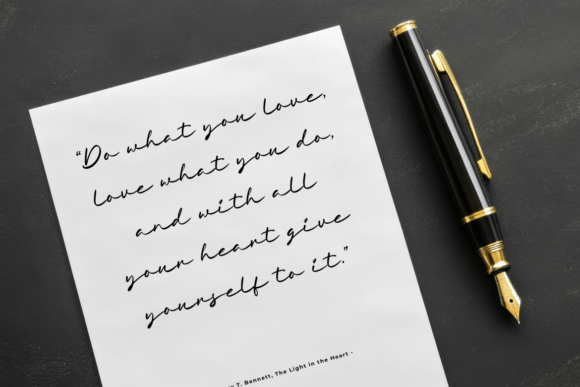 "Do what you love,
love what you do,
and with all
your heart give
yourself to it."
T. Bennett, The Light in the Heart -